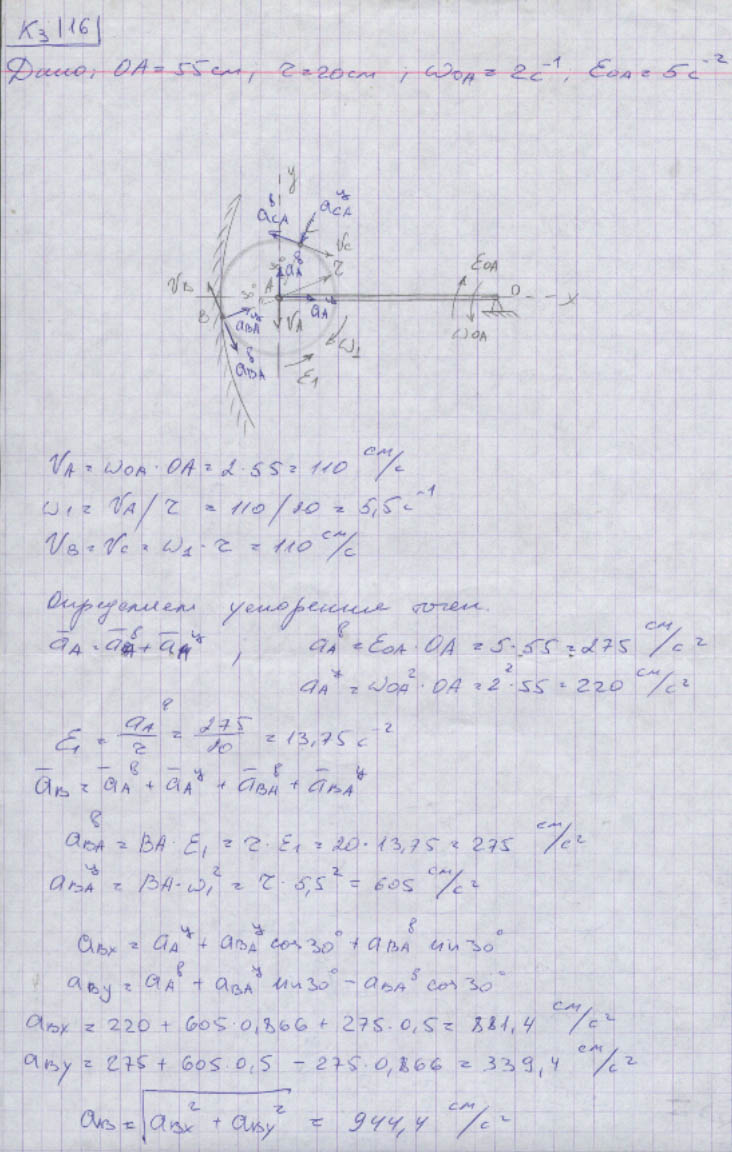 К3 |16|
Дано: OA = 55 см, r = 20 см ; ωOA = 2 с⁻¹, εOA = 5 с⁻²
y
aCA^в aCA^ц
VC
aA^в r
30°
VB 30° A aA^ц εOA O x
B aBA^ц VA ω1 ωOA
aBA^в ε1
VA = ωOA · OA = 2 · 55 = 110 см/с
ω1 = VA / r = 110 / 20 = 5,5 с⁻¹
VB = VC = ω1 · r = 110 см/с
Определяем ускорения точек.
āA = āA^в + āA^ц ; aA^в = εOA · OA = 5 · 55 = 275 см/с²
aA^ц = ωOA² · OA = 2² · 55 = 220 см/с²
ε1 = aA^в / r = 275 / 20 = 13,75 с⁻²
āB = āA^в + āA^ц + āBA^в + āBA^ц
aBA^в = BA · ε1 = r · ε1 = 20 · 13,75 = 275 см/с²
aBA^ц = BA · ω1² = r · 5,5² = 605 см/с²
aBx = aA^ц + aBA^ц cos 30° + aBA^в sin 30°
aBy = aA^в + aBA^ц sin 30° − aBA^в cos 30°
aBx = 220 + 605 · 0,866 + 275 · 0,5 = 881,4 см/с²
aBy = 275 + 605 · 0,5 − 275 · 0,866 = 339,4 см/с²
aB = √(aBx² + aBy²) = 944,4 см/с²